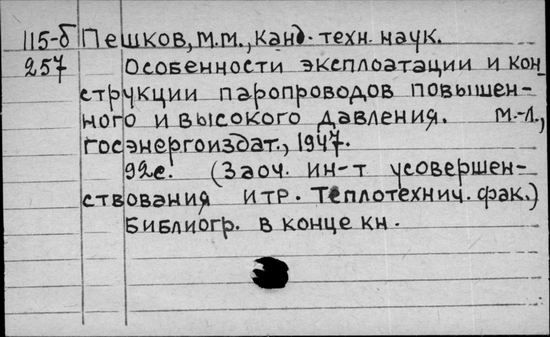 115-б Пешков, М.М., канд. техн. наук.
257 Особенности эксплоатации и кон-
струкции паропроводов повышен-
ного и высокого давления. М.-Л.,
Госэнергоиздат., 1947.
92с. (Заоч. ин-т усовершен-
ствования ИТР. Теплотехнич. фак.)
Библиогр. в конце кн.